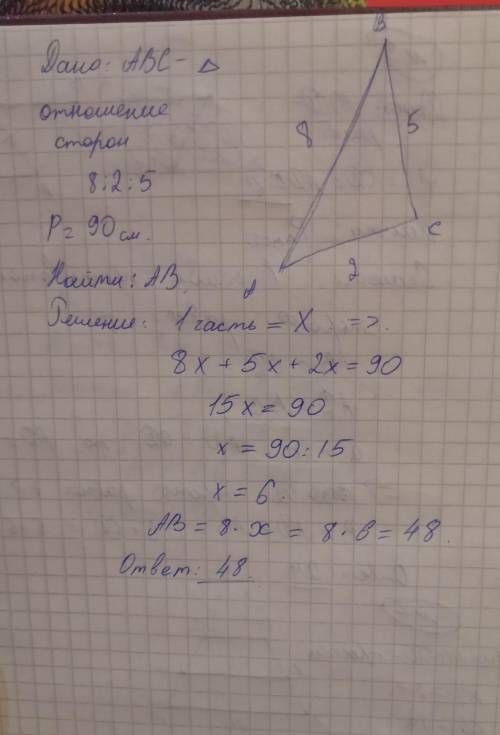 Дано: АВС - Δ
отношение
сторон
8:2:5
P = 90 см.
Найти: АВ.
Решение: 1 часть = X =>.
8x + 5x + 2x = 90
15x = 90
x = 90:15
x = 6.
АВ = 8 · x = 8 · 6 = 48.
Ответ: 48.
B
8
5
C
A
2